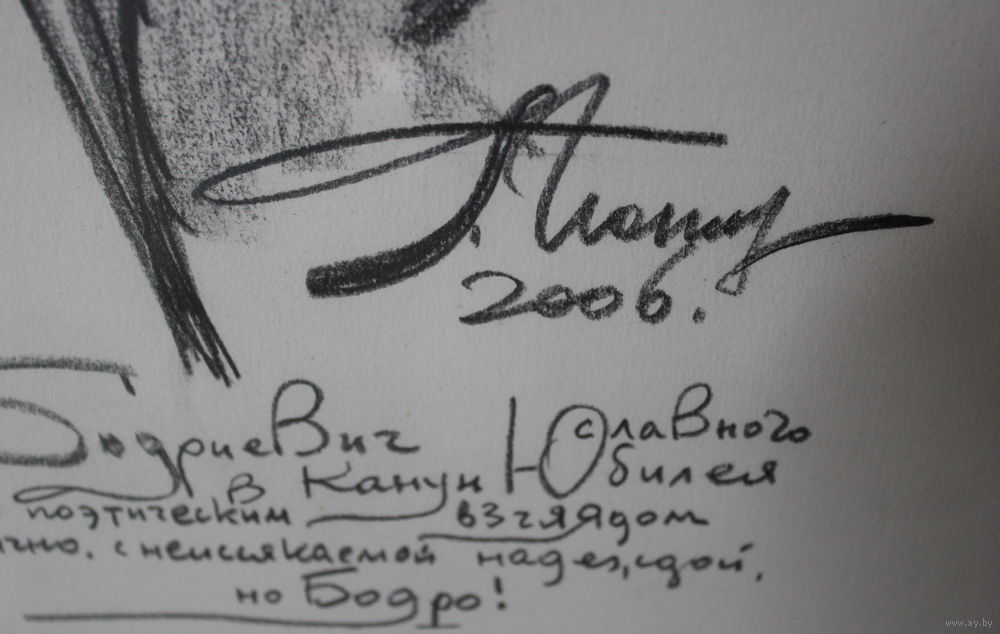 2006.
в Канун славного Юбилея
поэтическим взглядом
с неиссякаемой надеждой,
но Бодро!
www.ay.by